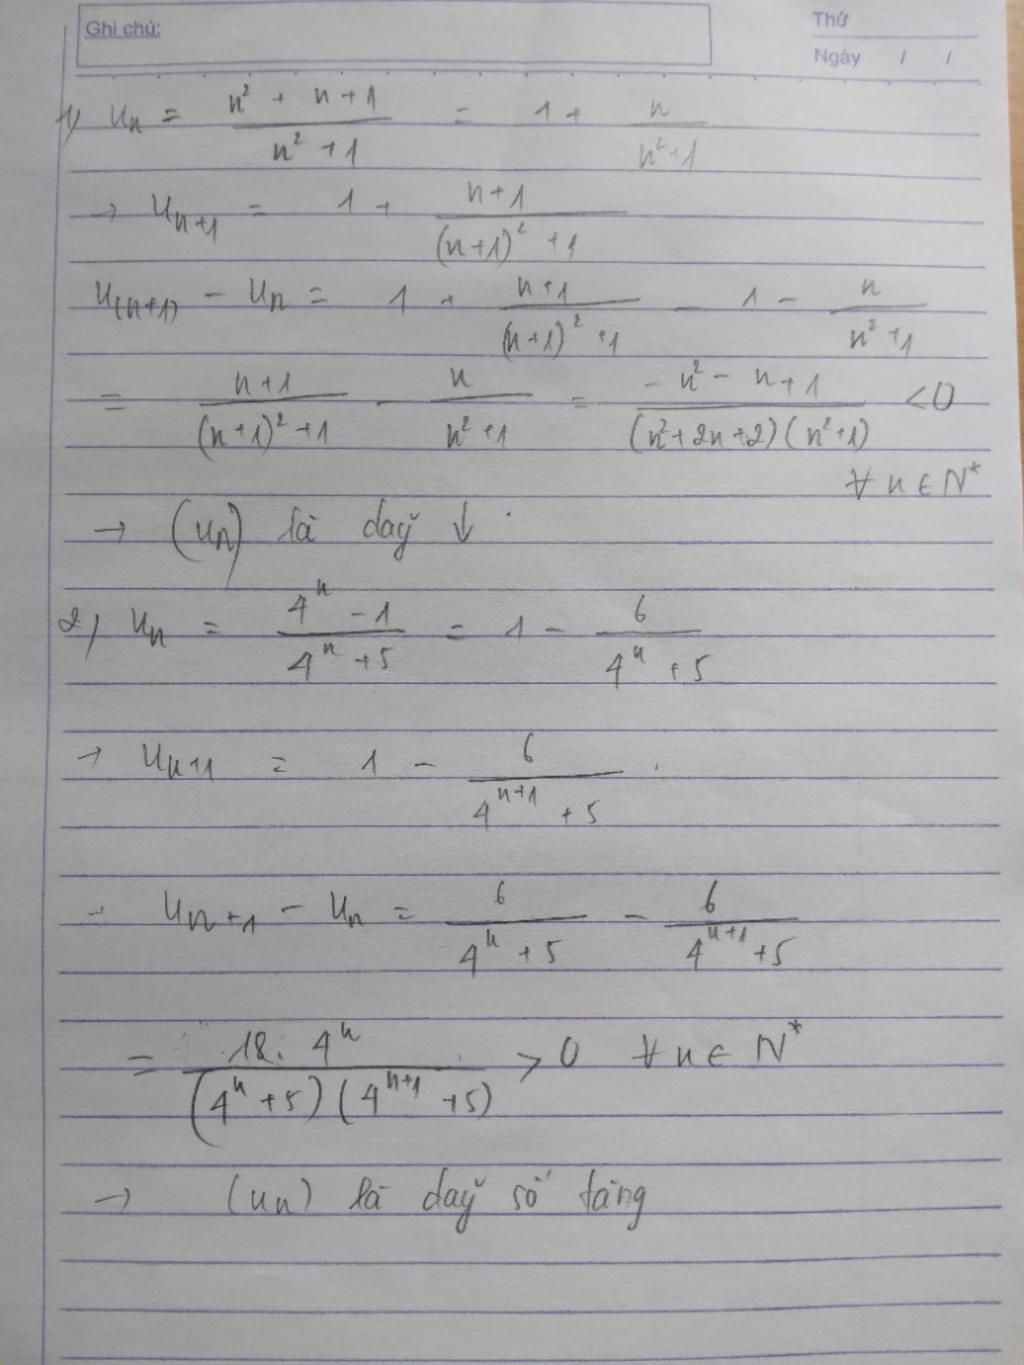 Ghi chú:
Thứ
Ngày / /
1) uₙ = (n² + n + 1)/(n² + 1) = 1 + n/(n² + 1)
→ uₙ₊₁ = 1 + (n+1)/((n+1)² + 1)
u₍ₙ₊₁₎ - uₙ = 1 + (n+1)/((n+1)² + 1) - 1 - n/(n² + 1)
= (n+1)/((n+1)² + 1) - n/(n² + 1) = (-n² - n + 1)/((n² + 2n + 2)(n² + 1)) < 0
∀ n ∈ N*
→ (uₙ) là dãy ↓
2) uₙ = (4ⁿ - 1)/(4ⁿ + 5) = 1 - 6/(4ⁿ + 5)
→ uₙ₊₁ = 1 - 6/(4ⁿ⁺¹ + 5)
→ uₙ₊₁ - uₙ = 6/(4ⁿ + 5) - 6/(4ⁿ⁺¹ + 5)
= (18. 4ⁿ)/((4ⁿ + 5)(4ⁿ⁺¹ + 5)) > 0 ∀ n ∈ N*
→ (uₙ) là dãy số tăng